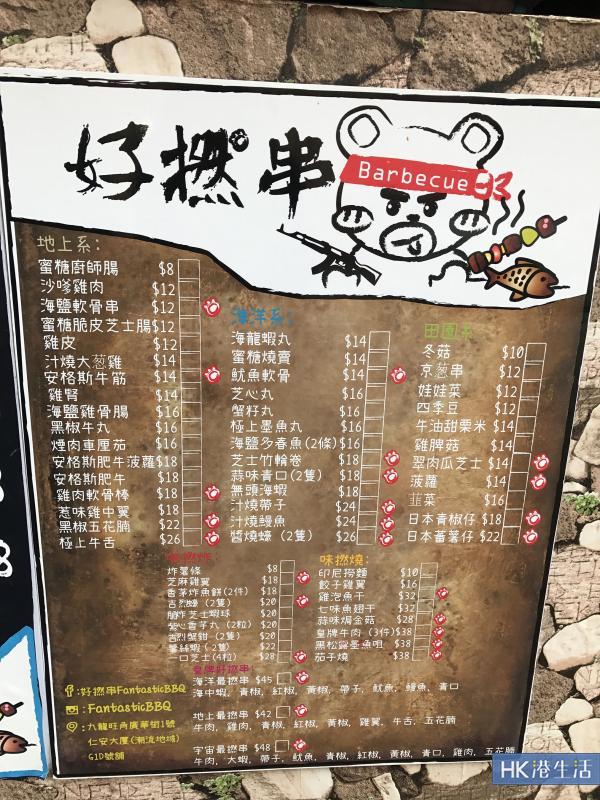 好撚串
Barbecue
地上系：
蜜糖廚師腸 $8
沙嗲雞肉 $12
海鹽軟骨串 $12
蜜糖脆皮芝士腸 $12
雞皮 $12
汁燒大葱雞 $14
安格斯牛筋 $14
雞腎 $14
海鹽雞骨腸 $16
黑椒牛丸 $16
煙肉車厘茄 $16
安格斯肥牛菠蘿 $18
安格斯肥牛 $18
雞肉軟骨棒 $18
惹味雞中翼 $18
黑椒五花腩 $22
極上牛舌 $26
海洋系：
海龍蝦丸 $14
蜜糖燒賣 $14
魷魚軟骨 $14
芝心丸 $16
蟹籽丸 $16
極上墨魚丸 $16
海鹽多春魚(2條) $16
芝士竹輪卷 $18
蒜味青口(2隻) $18
無頭海蝦 $18
汁燒帶子 $24
汁燒鰻魚 $24
醬燒蠔(2隻) $26
田園系
冬菇 $10
京葱串 $12
娃娃菜 $12
四季豆 $12
牛油甜栗米 $14
雞脾菇 $14
翠肉瓜芝士 $14
菠蘿 $14
韮菜 $16
日本青椒仔 $18
日本蕃薯仔 $22
炸薯條 $8
芝麻雞翼 $18
香茅炸魚餅(2件) $18
吉烈蠔(2隻) $20
脆炸芝士蝦球 $20
紫心香芋丸(2粒) $20
吉烈蟹鉗(2隻) $20
薯絲蝦(2隻) $22
一口芝士(4粒) $28
味撚燒：
印尼撈麵 $10
餃子雞翼 $16
雞泡魚干 $32
七味魚翅干 $32
蒜味焗金菇 $28
皇牌牛肉(3件) $38
黑松露墨魚咀 $38
茄子燒 $38
皇牌好撚串：
海洋最撚串 $45
海中蝦, 青椒, 紅椒, 黃椒, 帶子, 魷魚, 鰻魚, 青口
地上最撚串 $42
牛肉, 雞肉, 青椒, 紅椒, 黃椒, 雞翼, 牛舌, 五花腩
宇宙最撚串 $48
牛肉, 大蝦, 帶子, 魷魚, 青椒, 紅椒, 黃椒, 青口, 雞肉, 五花腩
:好撚串FantasticBBQ
:FantasticBBQ
:九龍旺角廣華街1號
仁安大廈(潮流地域)
G1D號舖
HK港生活